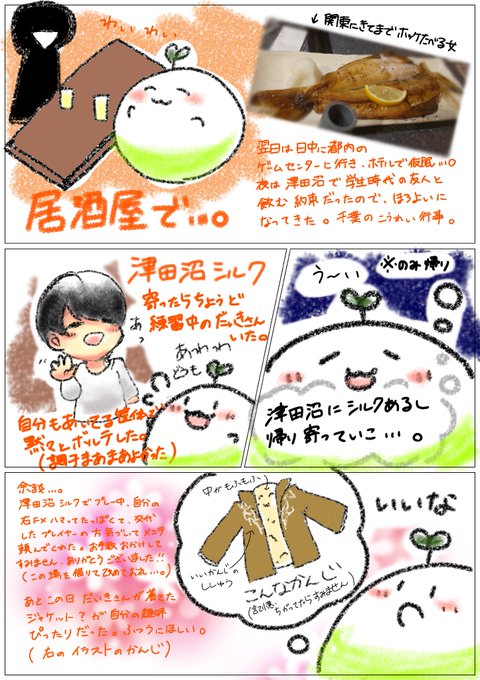 わいわい
↓関東にきてまでホッケたべる女
翌日は日中に都内の
ゲームセンターに行き、ホテルで仮眠…。
夜は津田沼で学生時代の友人と
飲む約束だったので、ほろよいに
なってきた。千葉のこうれい行事。
居酒屋で…。
※のみ帰り
う〜い
津田沼にシルクあるし
帰り寄っていこ…。
津田沼シルク
寄ったらちょうど
練習中のだいきさん
いた。
あっ
あわわ
どうも
自分もあいてる筐体で
黙々とボルテした。
(調子まあまあよかった)
余談…。
津田沼シルクでプレー中、自分の
右FXハマってたっぽくて、交代
したプレイヤーの方気づいてメンテ
頼んでくれた。お手数おかけして
すみません、ありがとうございました!!
(この場を借りて改めてお礼…。)
あとこの日だいきさんが着てた
ジャケット?が自分の趣味
ぴったりだった。ふつうにほしい。
(右のイラストのかんじ)
中がもふもふ
いいかんじの
ししゅう
こんなかんじ
(記憶ちがってたらすみません)
いいな